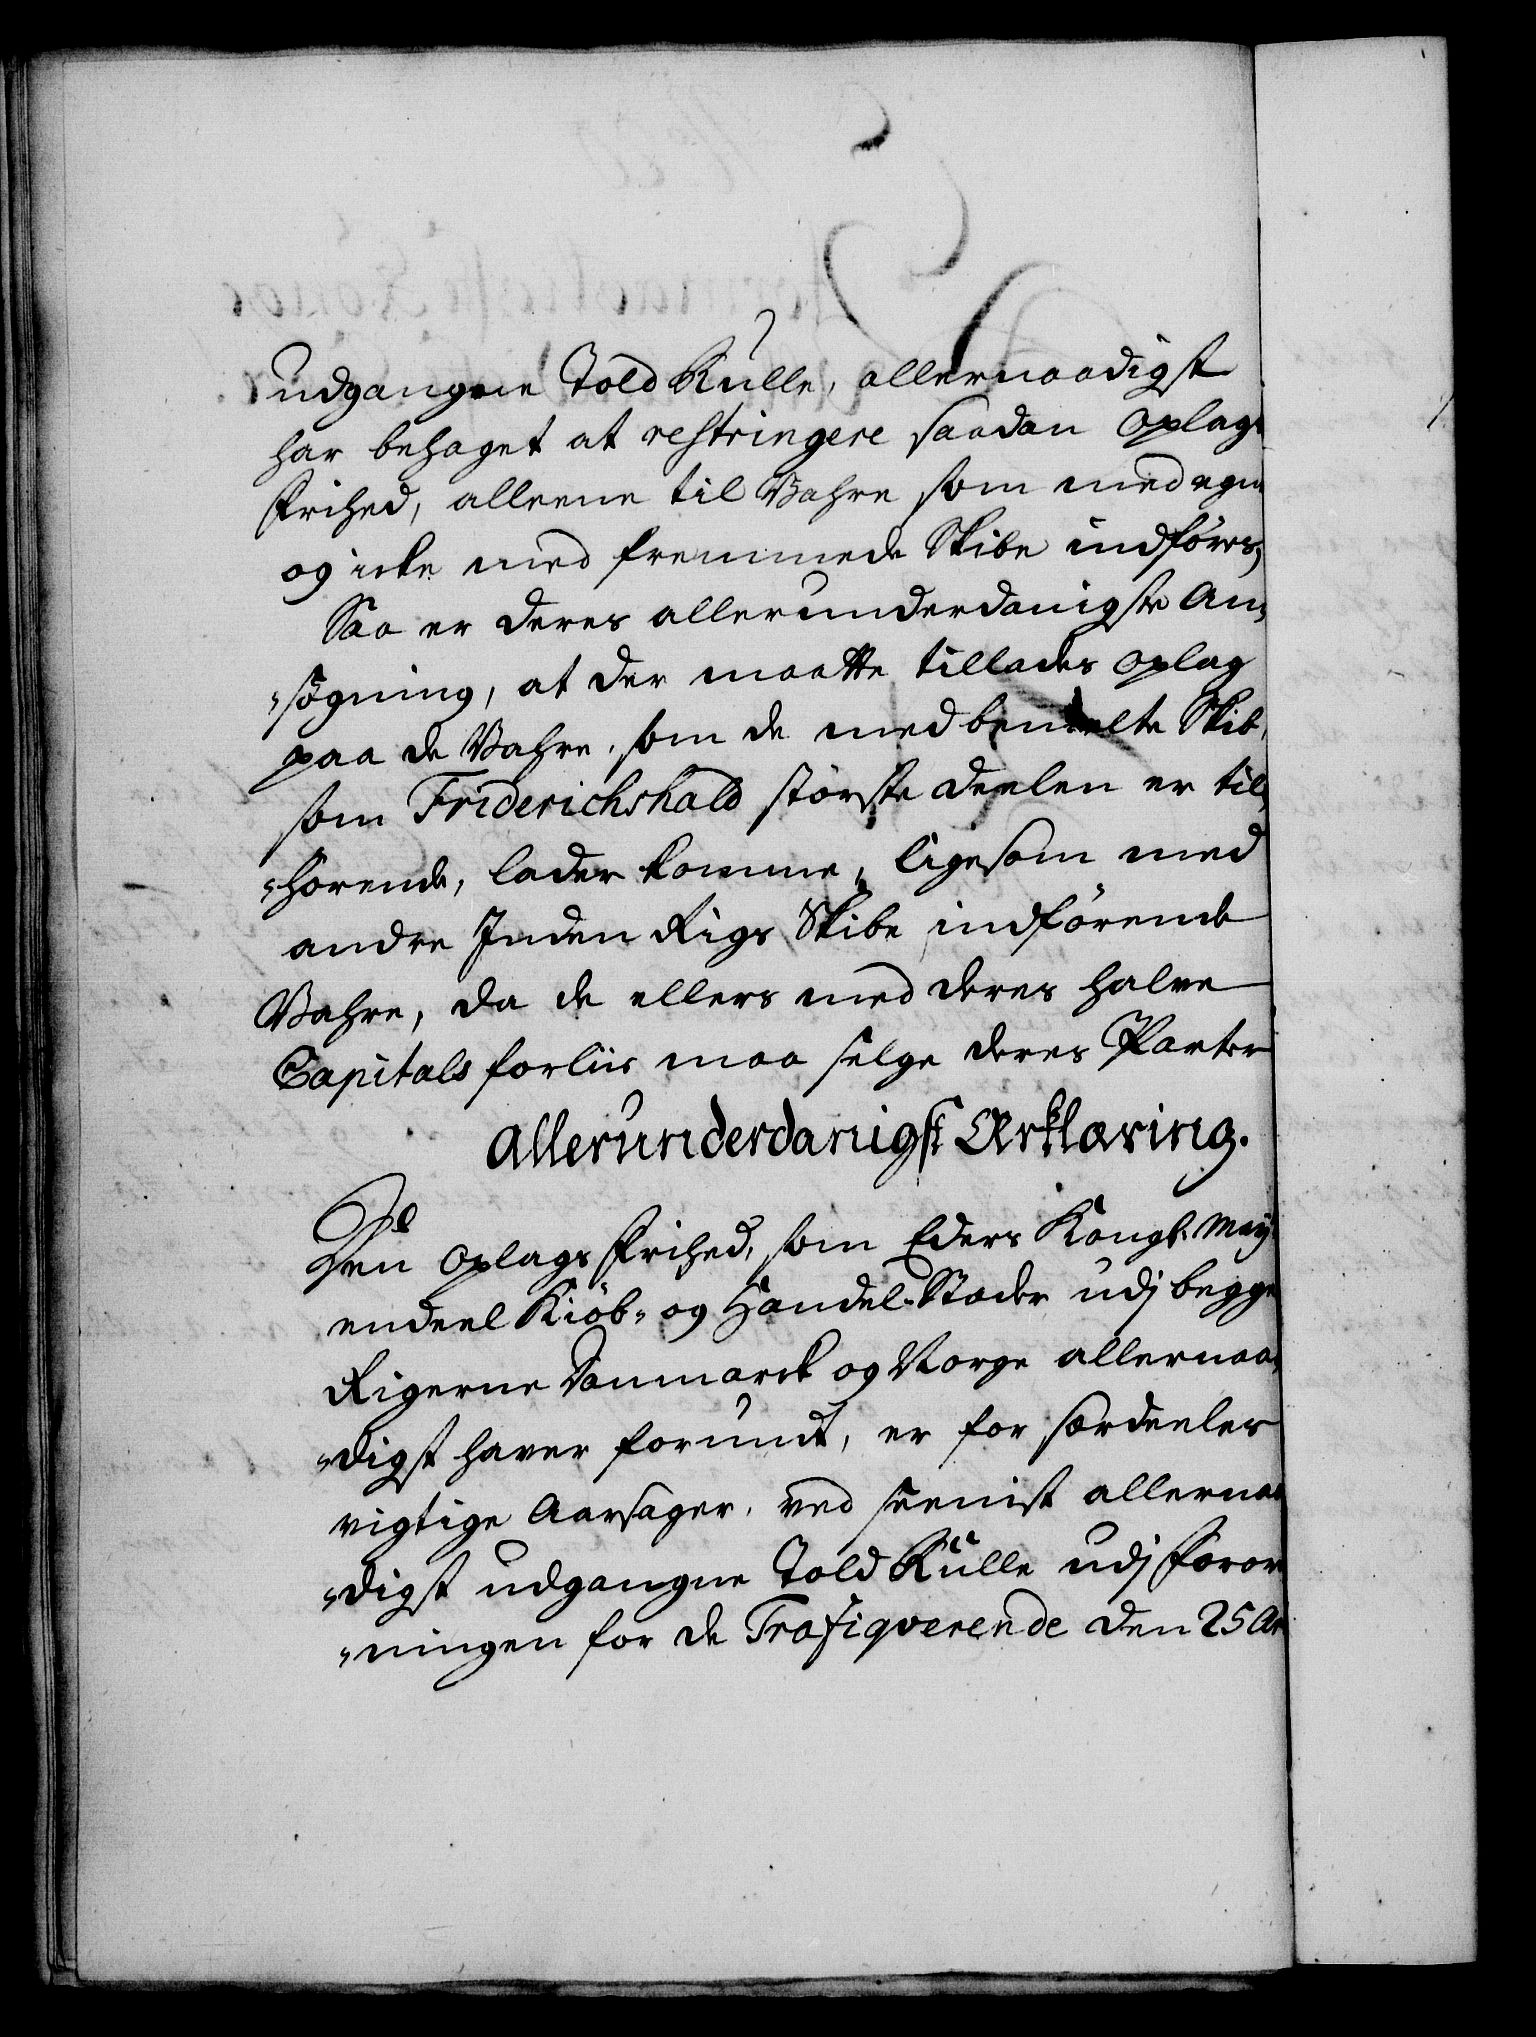 udgangne Told Rulle, allernaadigst
har behaget at restringere saadan Oplags
Frihed, alleene til Vahre som med egne
og icke med fremmede Skibe indføres,
Saa er deres allerunderdanigste An„
„søgning, at der maatte tillades Oplag
paa de Vahre, som de med bemelte Skib,
som Friderichshald største deelen er til„
„hørende, lader komme, ligesom med
andre Inden Rigs Skibe indførende
Vahre, da de ellers med deres halve
Capitals forliis maa selge deres Parter
Allerunderdanigst Erklæring.
Den Oplags Frihed, som Eders Kongl. May
endeel Kiöb- og Handel-Stæder udj begge
Rigerne Danmarck og Norge allernaa„
„digst haver forundt, er for særdeeles
vigtige Aarsager, ved seenist allernaa
„digst udgangne Told Rulle udj Foror
„ningen for de Trafiqverende den 25